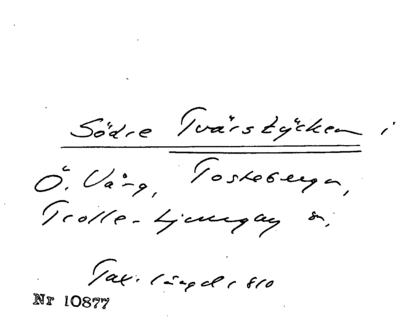 Södre Tvärstycken i
Ö. Vång, Tosteberga,
Trolle-Ljungby s.
Tax. längd 1810
Nr 10877